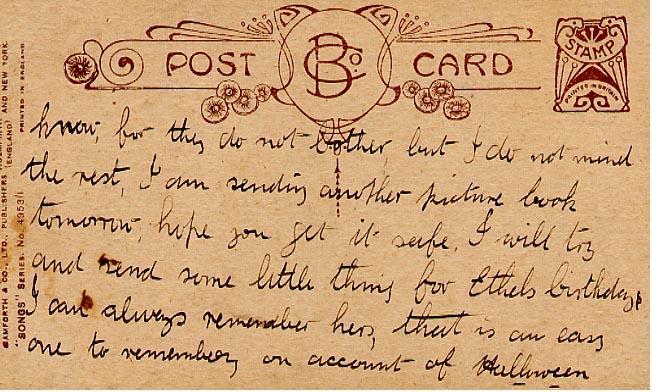 POST CARD
B Co.
STAMP
PRINTED IN BRITAIN
BAMFORTH & CO., LTD., PUBLISHERS (ENGLAND) AND NEW YORK.
"SONGS" SERIES. No. 4953/1
PRINTED IN ENGLAND
know, for they do not bother, but I do not mind
the rest, I am sending another picture book
tomorrow, hope you get it safe. I will try
and send some little thing for Ethels birthday,
I can always remember hers, that is an easy
one to remember, on account of Halloween